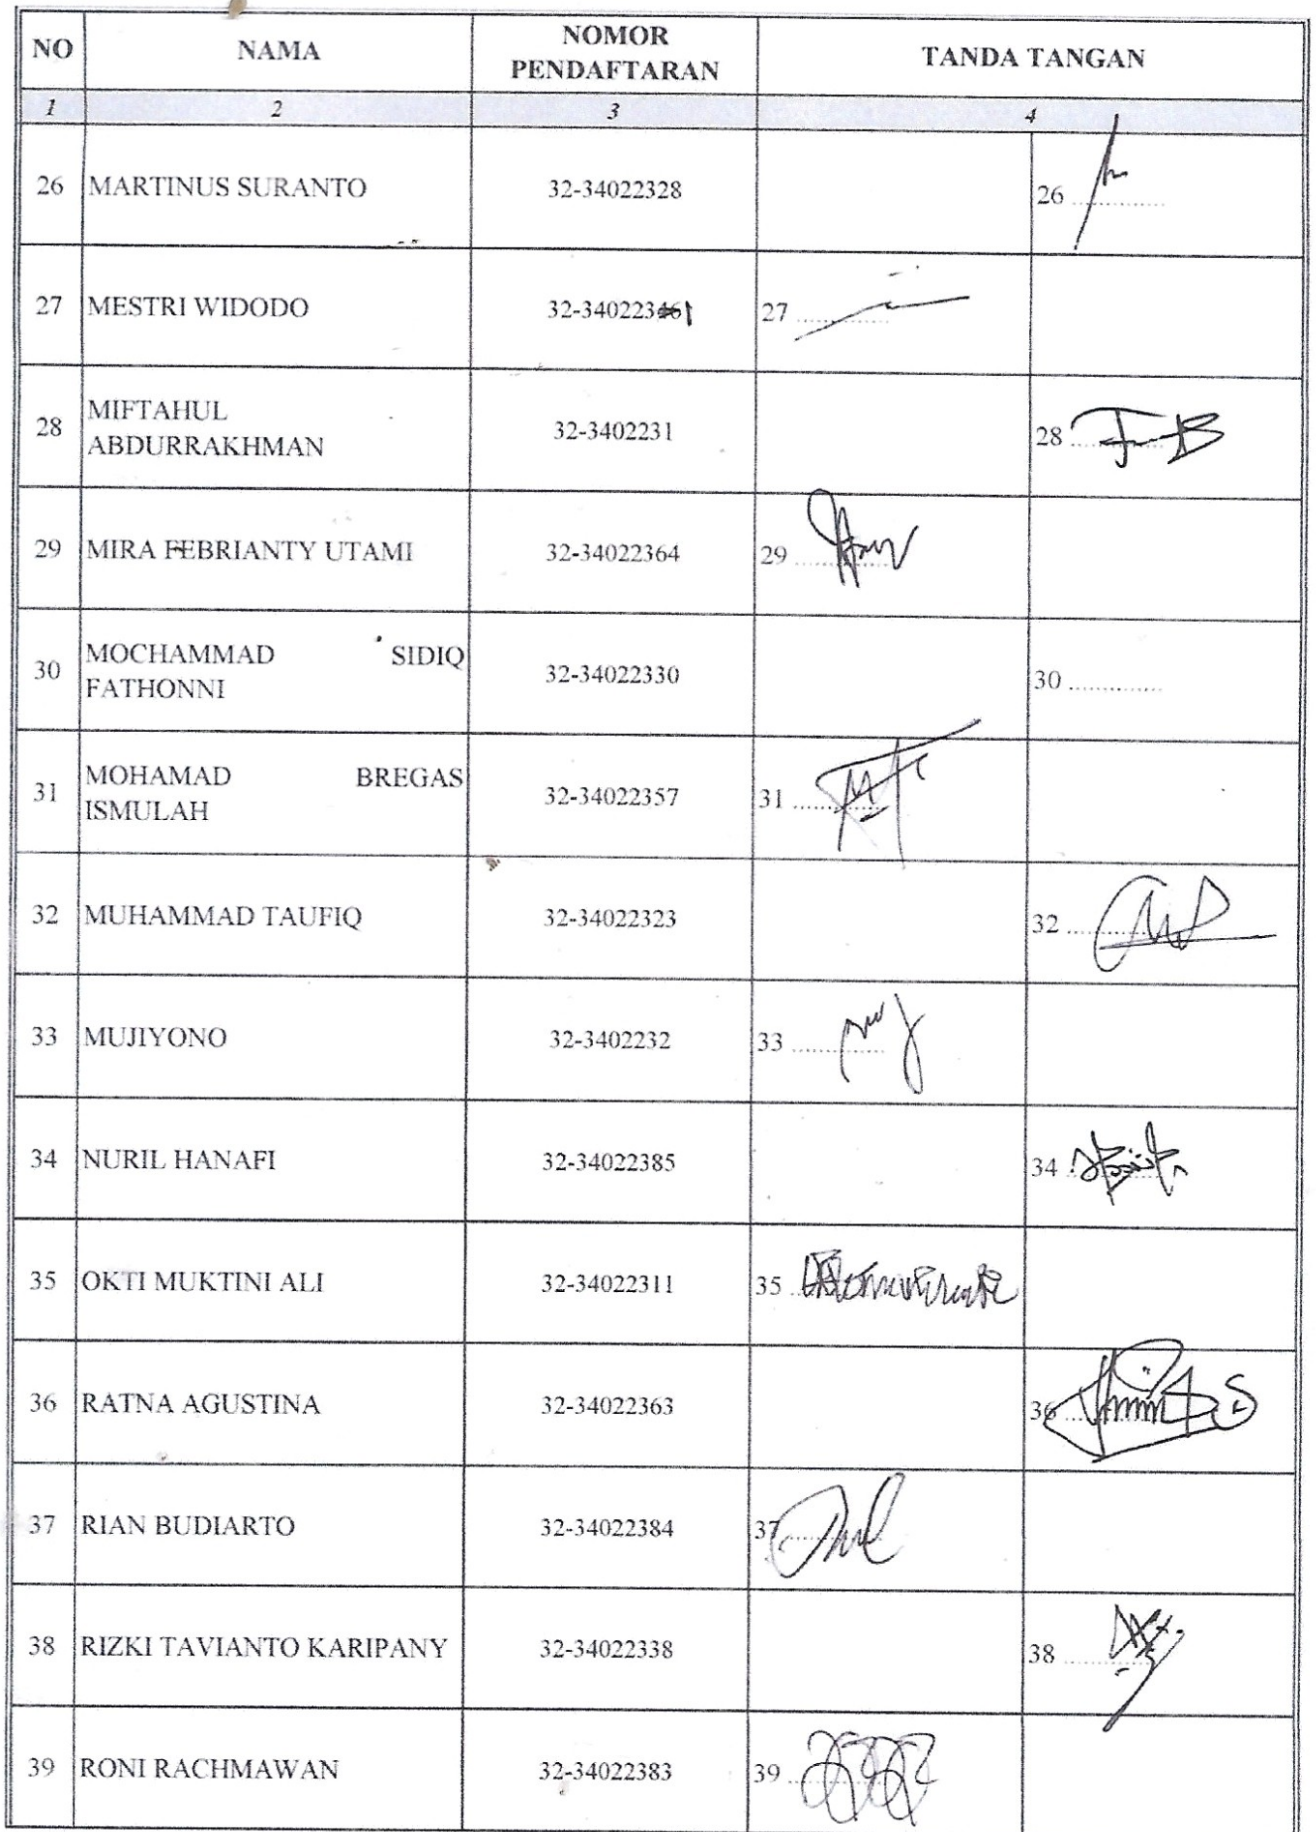 NO NAMA NOMOR PENDAFTARAN TANDA TANGAN
1 2 3 4
26 MARTINUS SURANTO 32-34022328 26
27 MESTRI WIDODO 27
28 MIFTAHUL ABDURRAKHMAN 32-3402231 28
29 MIRA FEBRIANTY UTAMI 32-34022364 29
30 MOCHAMMAD SIDIQ FATHONNI 32-34022330 30
31 MOHAMAD BREGAS ISMULAH 32-34022357 31
32 MUHAMMAD TAUFIQ 32-34022323 32
33 MUJIYONO 32-3402232 33
34 NURIL HANAFI 32-34022385 34
35 OKTI MUKTINI ALI 32-34022311 35
36 RATNA AGUSTINA 32-34022363 36
37 RIAN BUDIARTO 32-34022384 37
38 RIZKI TAVIANTO KARIPANY 32-34022338 38
39 RONI RACHMAWAN 32-34022383 39